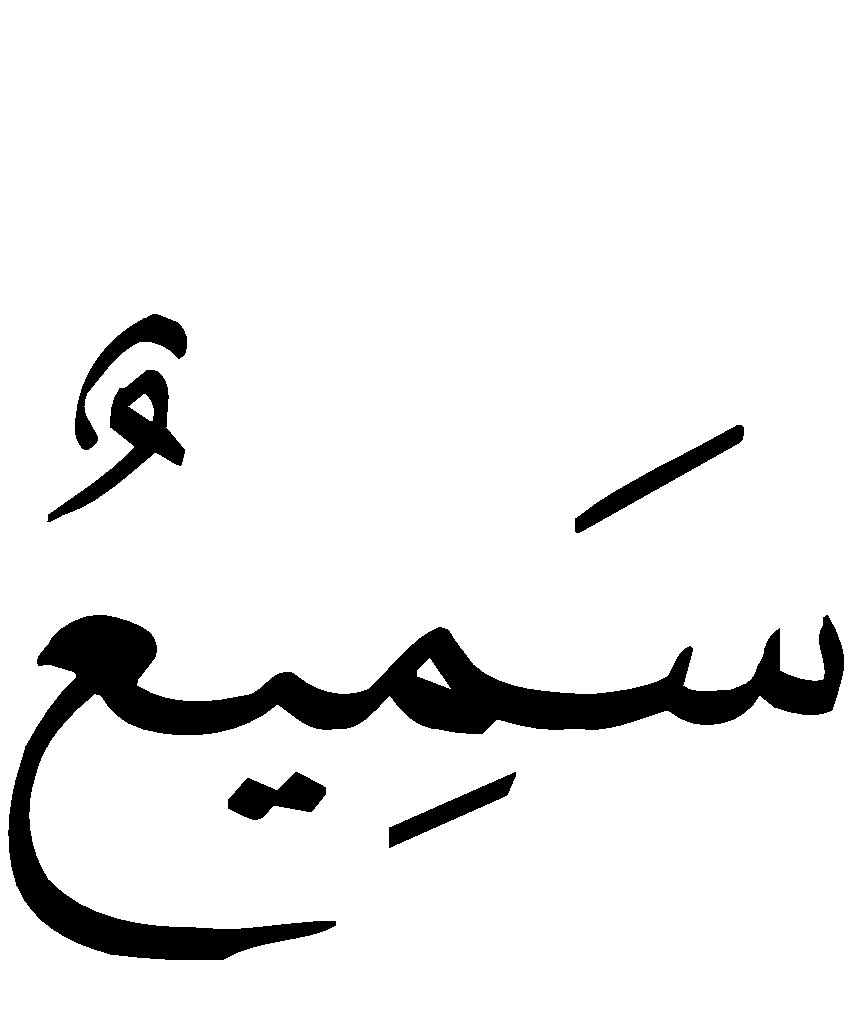 سَمِيعٌ